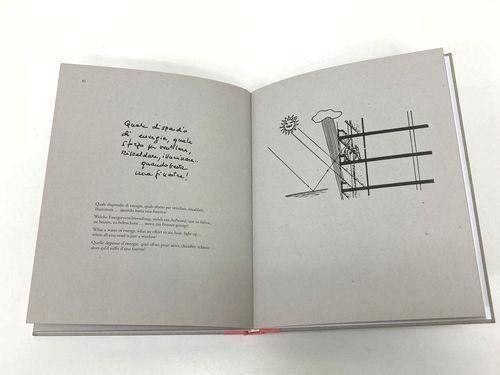 Quale dispendio
di energia, quale
sforzo per ventilare,
riscaldare, illuminare..
quando basta
una finestra!
Quale dispendio di energia, quale sforzo per ventilare, riscaldare,
illuminare … quando basta una finestra!
Welche Energieverschwendung, welch ein Aufwand, um zu lüften,
zu heizen, zu beleuchten … wenn ein Fenster genügt!
What a waste of energy, what an effort to air, heat, light up…
when all you need is just a window!
Quelle dépense d'énergie, quel effort pour aérer, chauffer, éclairer…
alors qu'il suffit d'une fenêtre!